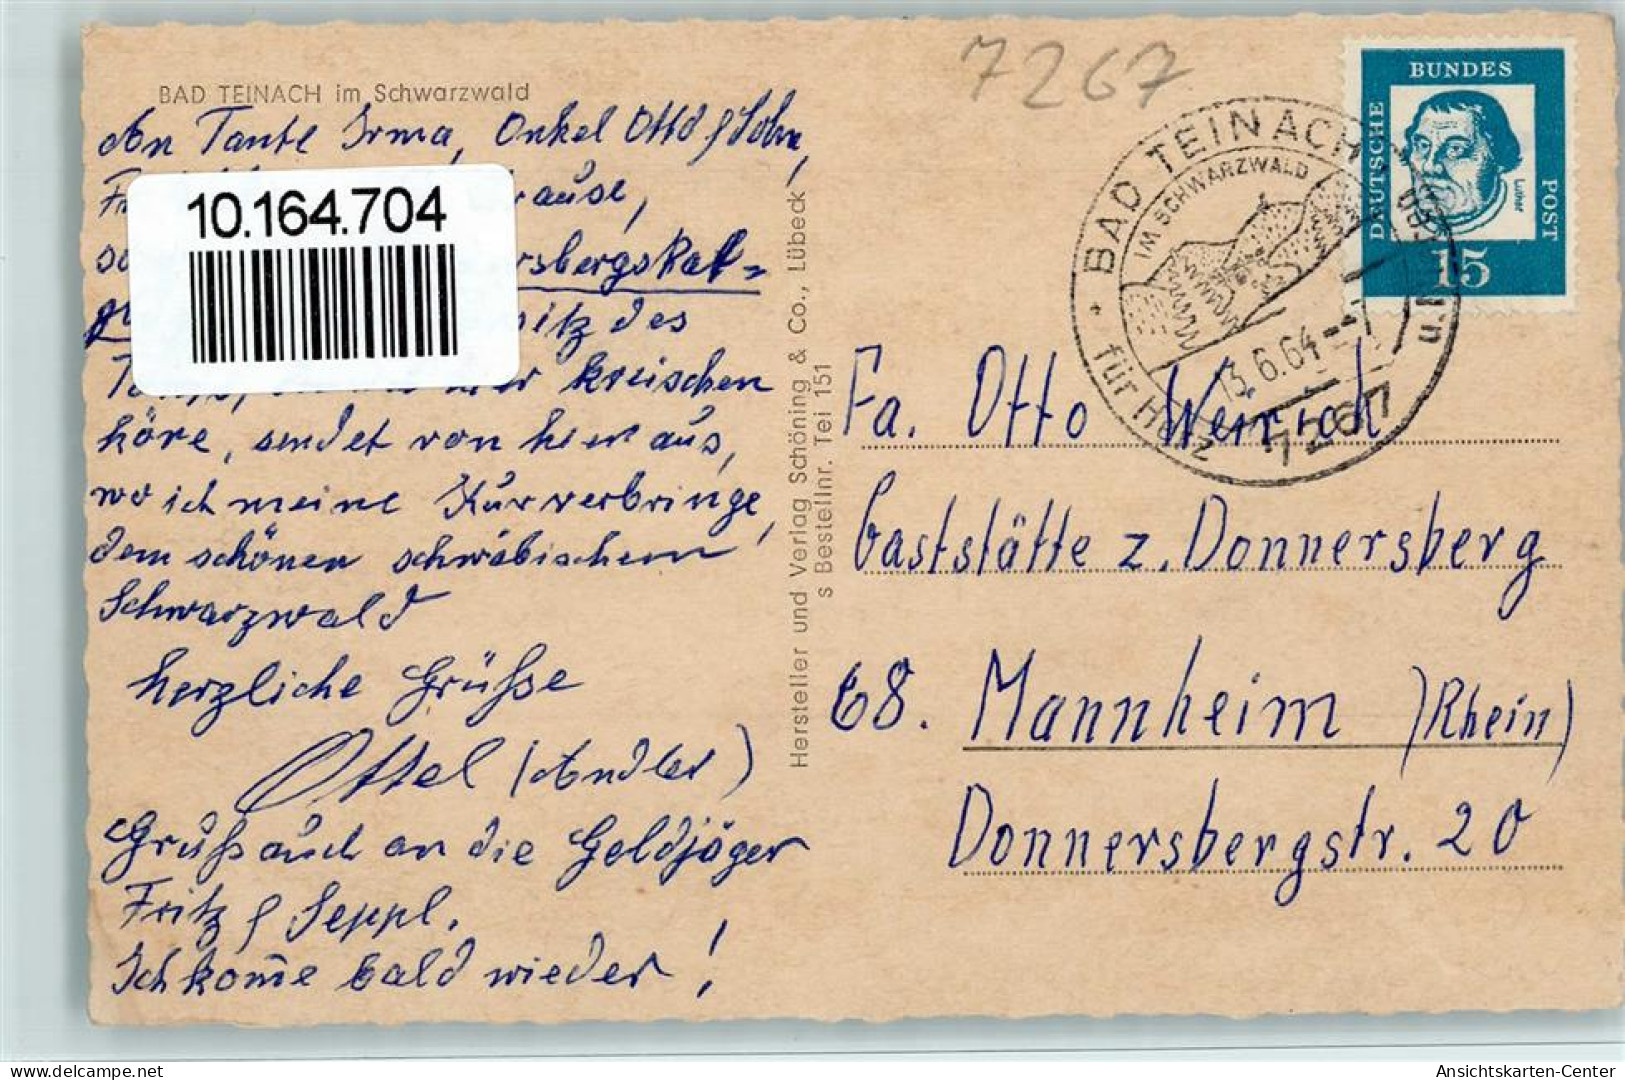 BAD TEINACH im Schwarzwald
An Tante Irma, Onkel Otto & Sohn,
rause,
rsbergskat=
sitz des
hier kreischen
höre, sendet von hier aus,
wo ich meine Kur verbringe,
dem schönen schwäbischem
Schwarzwald
herzliche Grüße
Ottel (Andler)
Gruß auch an die Goldjäger
Fritz & Seppl.
Ich kom̄e bald wieder!
10.164.704
Hersteller und Verlag Schöning & Co., Lübeck
s Bestellnr. Tei 151
7267
BAD TEINACH
IM SCHWARZWALD
13.6.64
7267
für Herz
u.
DEUTSCHE
BUNDES
POST
Luther
15
Fa. Otto Weinrich
Gaststätte z. Donnersberg
68. Mannheim (Rhein)
Donnersbergstr. 20
Ansichtskarten-Center